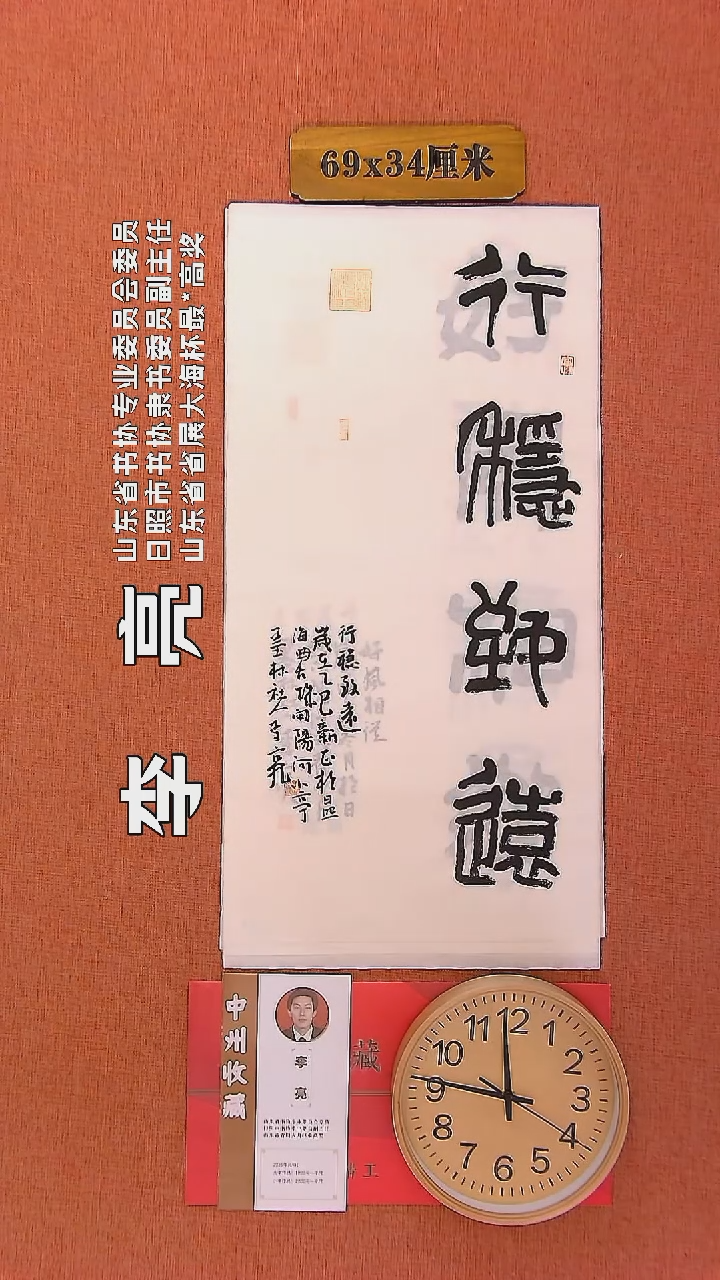 69x34厘米
山东省书协专业委员会委员
日照市书协隶书委员副主任
山东省省展大海杯最*高奖
李 亮
行穩致遠
行穩致遠
歲在乙巳新正於昌
墨林社人李亮
中州收藏
李亮
藏
12
1
2
3
4
5
6
7
8
9
10
11